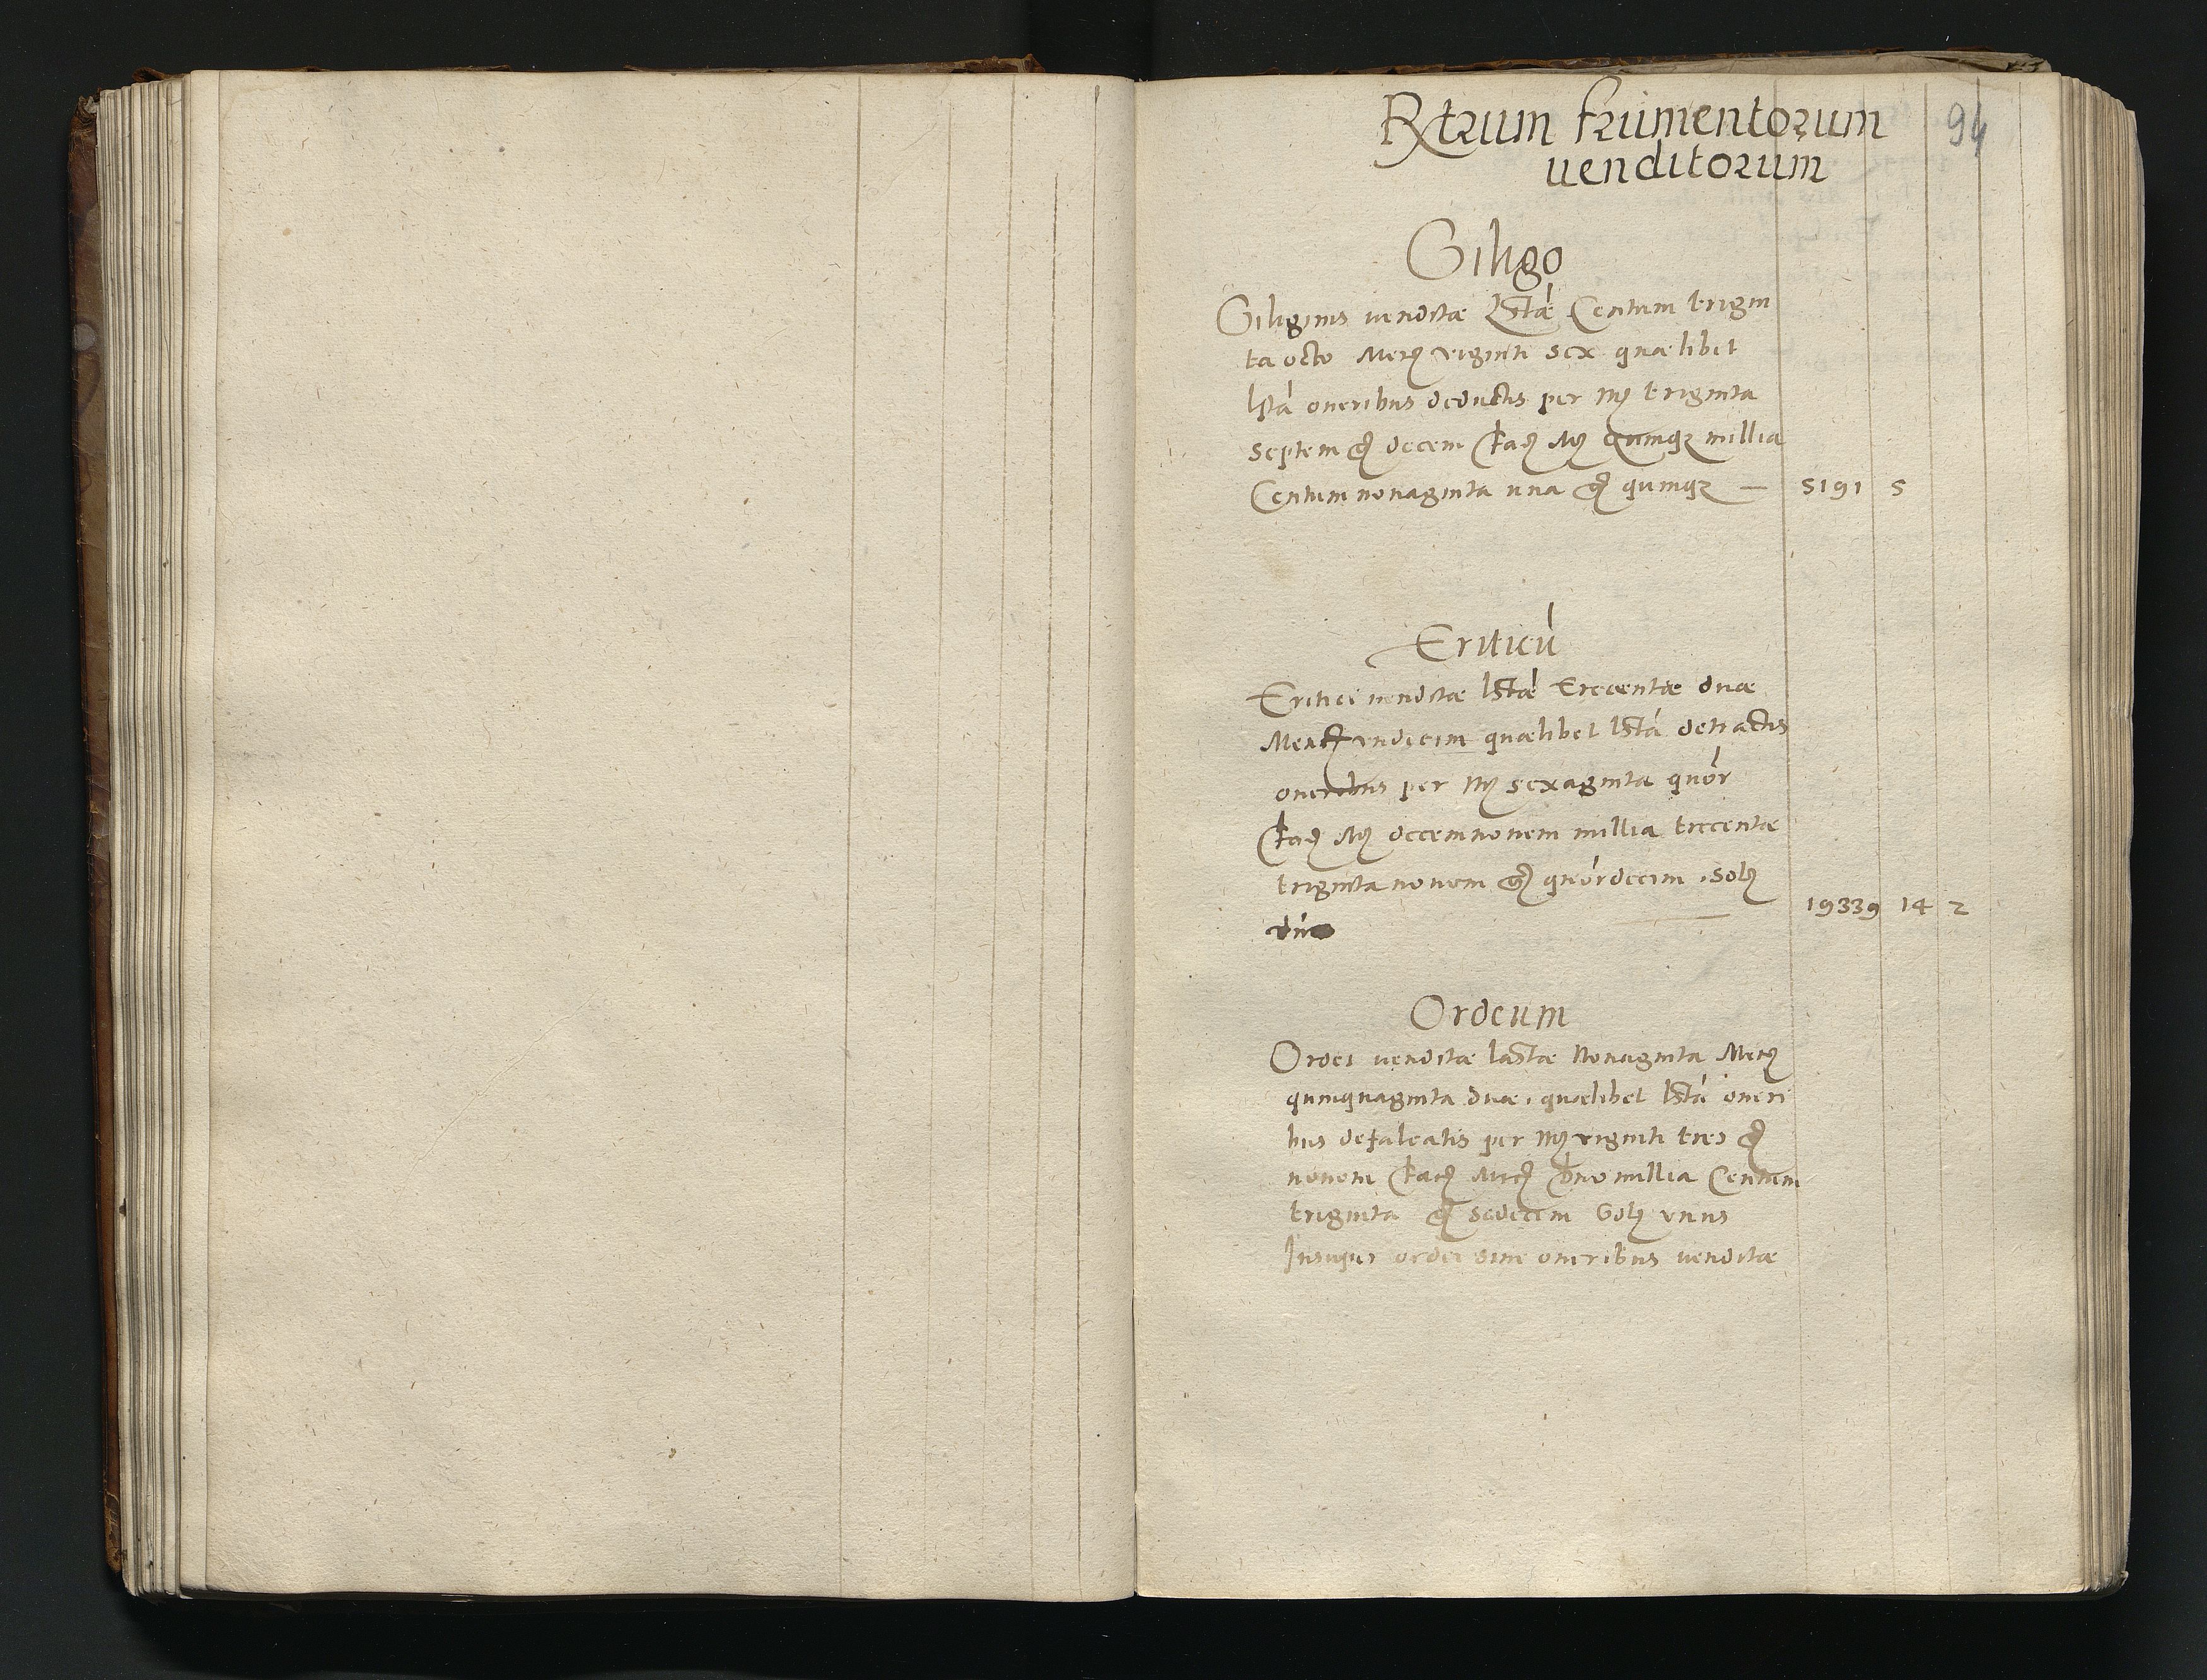 Rtrum frumentorum
uenditorum
94
Siligo
Siliginis uenditæ Lstæ Centum trigin
ta octo Merȷ viginti sex quælibet
lsta oneribus deductis per mȷ triginta
septem gȷ decem facȷ Mȷ quinqȝ millia
Centum nonaginta una gȷ quinqȝ — 5191 5
Triticū
Tritici uenditæ lstæ Trecentæ duæ
Merȷ undecim quælibet lsta detractis
oneribus per mȷ sexaginta quor
facȷ Mȷ decemnonem millia trecentæ
triginta nonem gȷ quordecim solȷ
duo — 19339 14 2
Ordeum
Ordei uenditæ lastæ Nonaginta Merȷ
quinquaginta duæ, quælibet lsta oneri
bus defalcatis per mȷ viginti tres gȷ
nonem facȷ Mrcȷ duo millia Centum
triginta gȷ sedecim Solȷ unus
Insuper ordei sine oneribus uenditæ